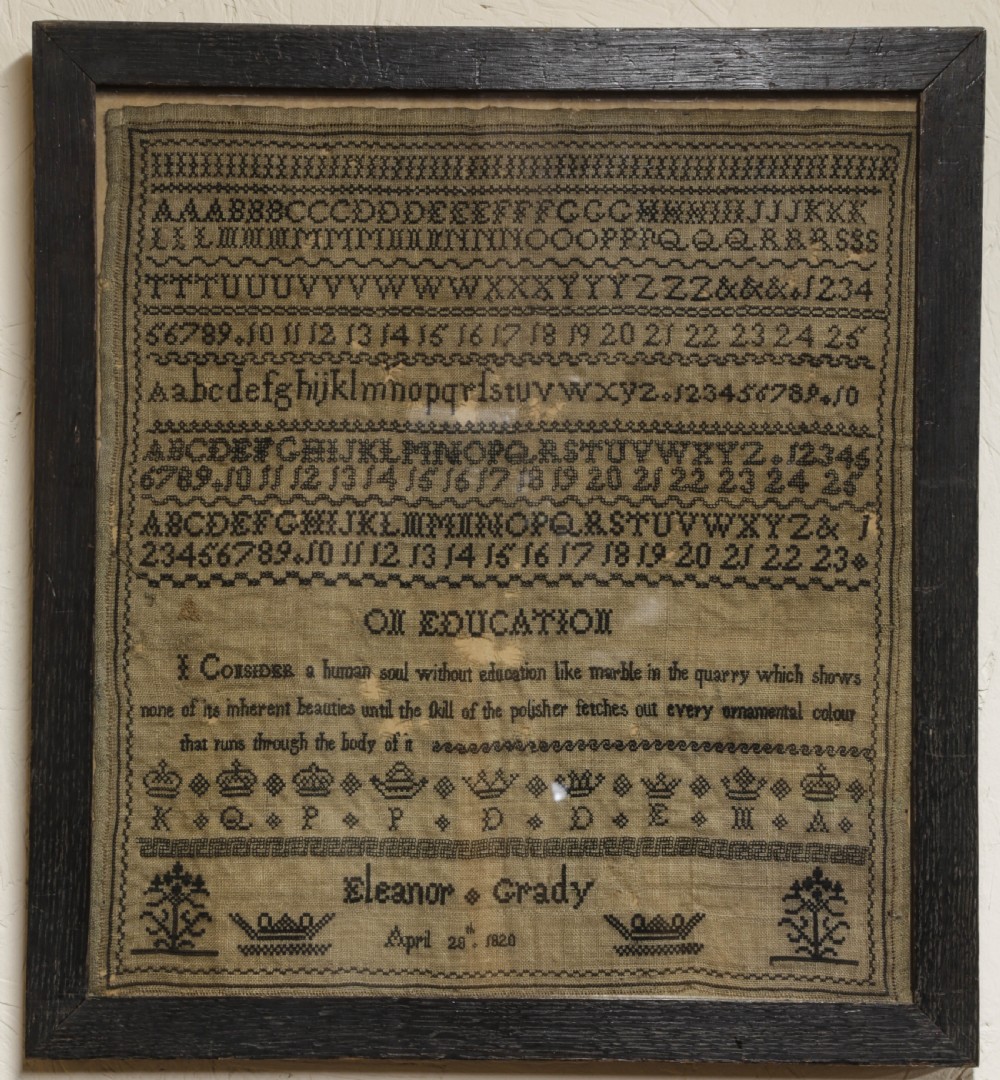 AAABBBCCCDDDEEEFFFGGGHHHIIIJJJKKK
LLLMMMMMMNNNNNNOOOPPPQQQRRRSSS
TTTUUUVVVWWWXXXYYYZZZ&&&.1234
56789.10 11 12 13 14 15 16 17 18 19 20 21 22 23 24 25
Aabcdefghijklmnopqrſstuvwxyz.123456789.10
ABCDEFGHIJKLMNOPQRSTUVWXYZ.12345
6789.10 11 12 13 14 15 16 17 18 19 20 21 22 23 24 25
ABCDEFGHIJKLMMNNOPQRSTUVWXYZ& 1
23456789.10 11 12 13 14 15 16 17 18 19 20 21 22 23
ON EDUCATION
I CONSIDER a human soul without education like marble in the quarry which shows
none of its inherent beauties until the ſkill of the poliſher fetches out every ornamental colour
that runs through the body of it
K Q P P D D E M A
Eleanor Grady
April 28th. 1820